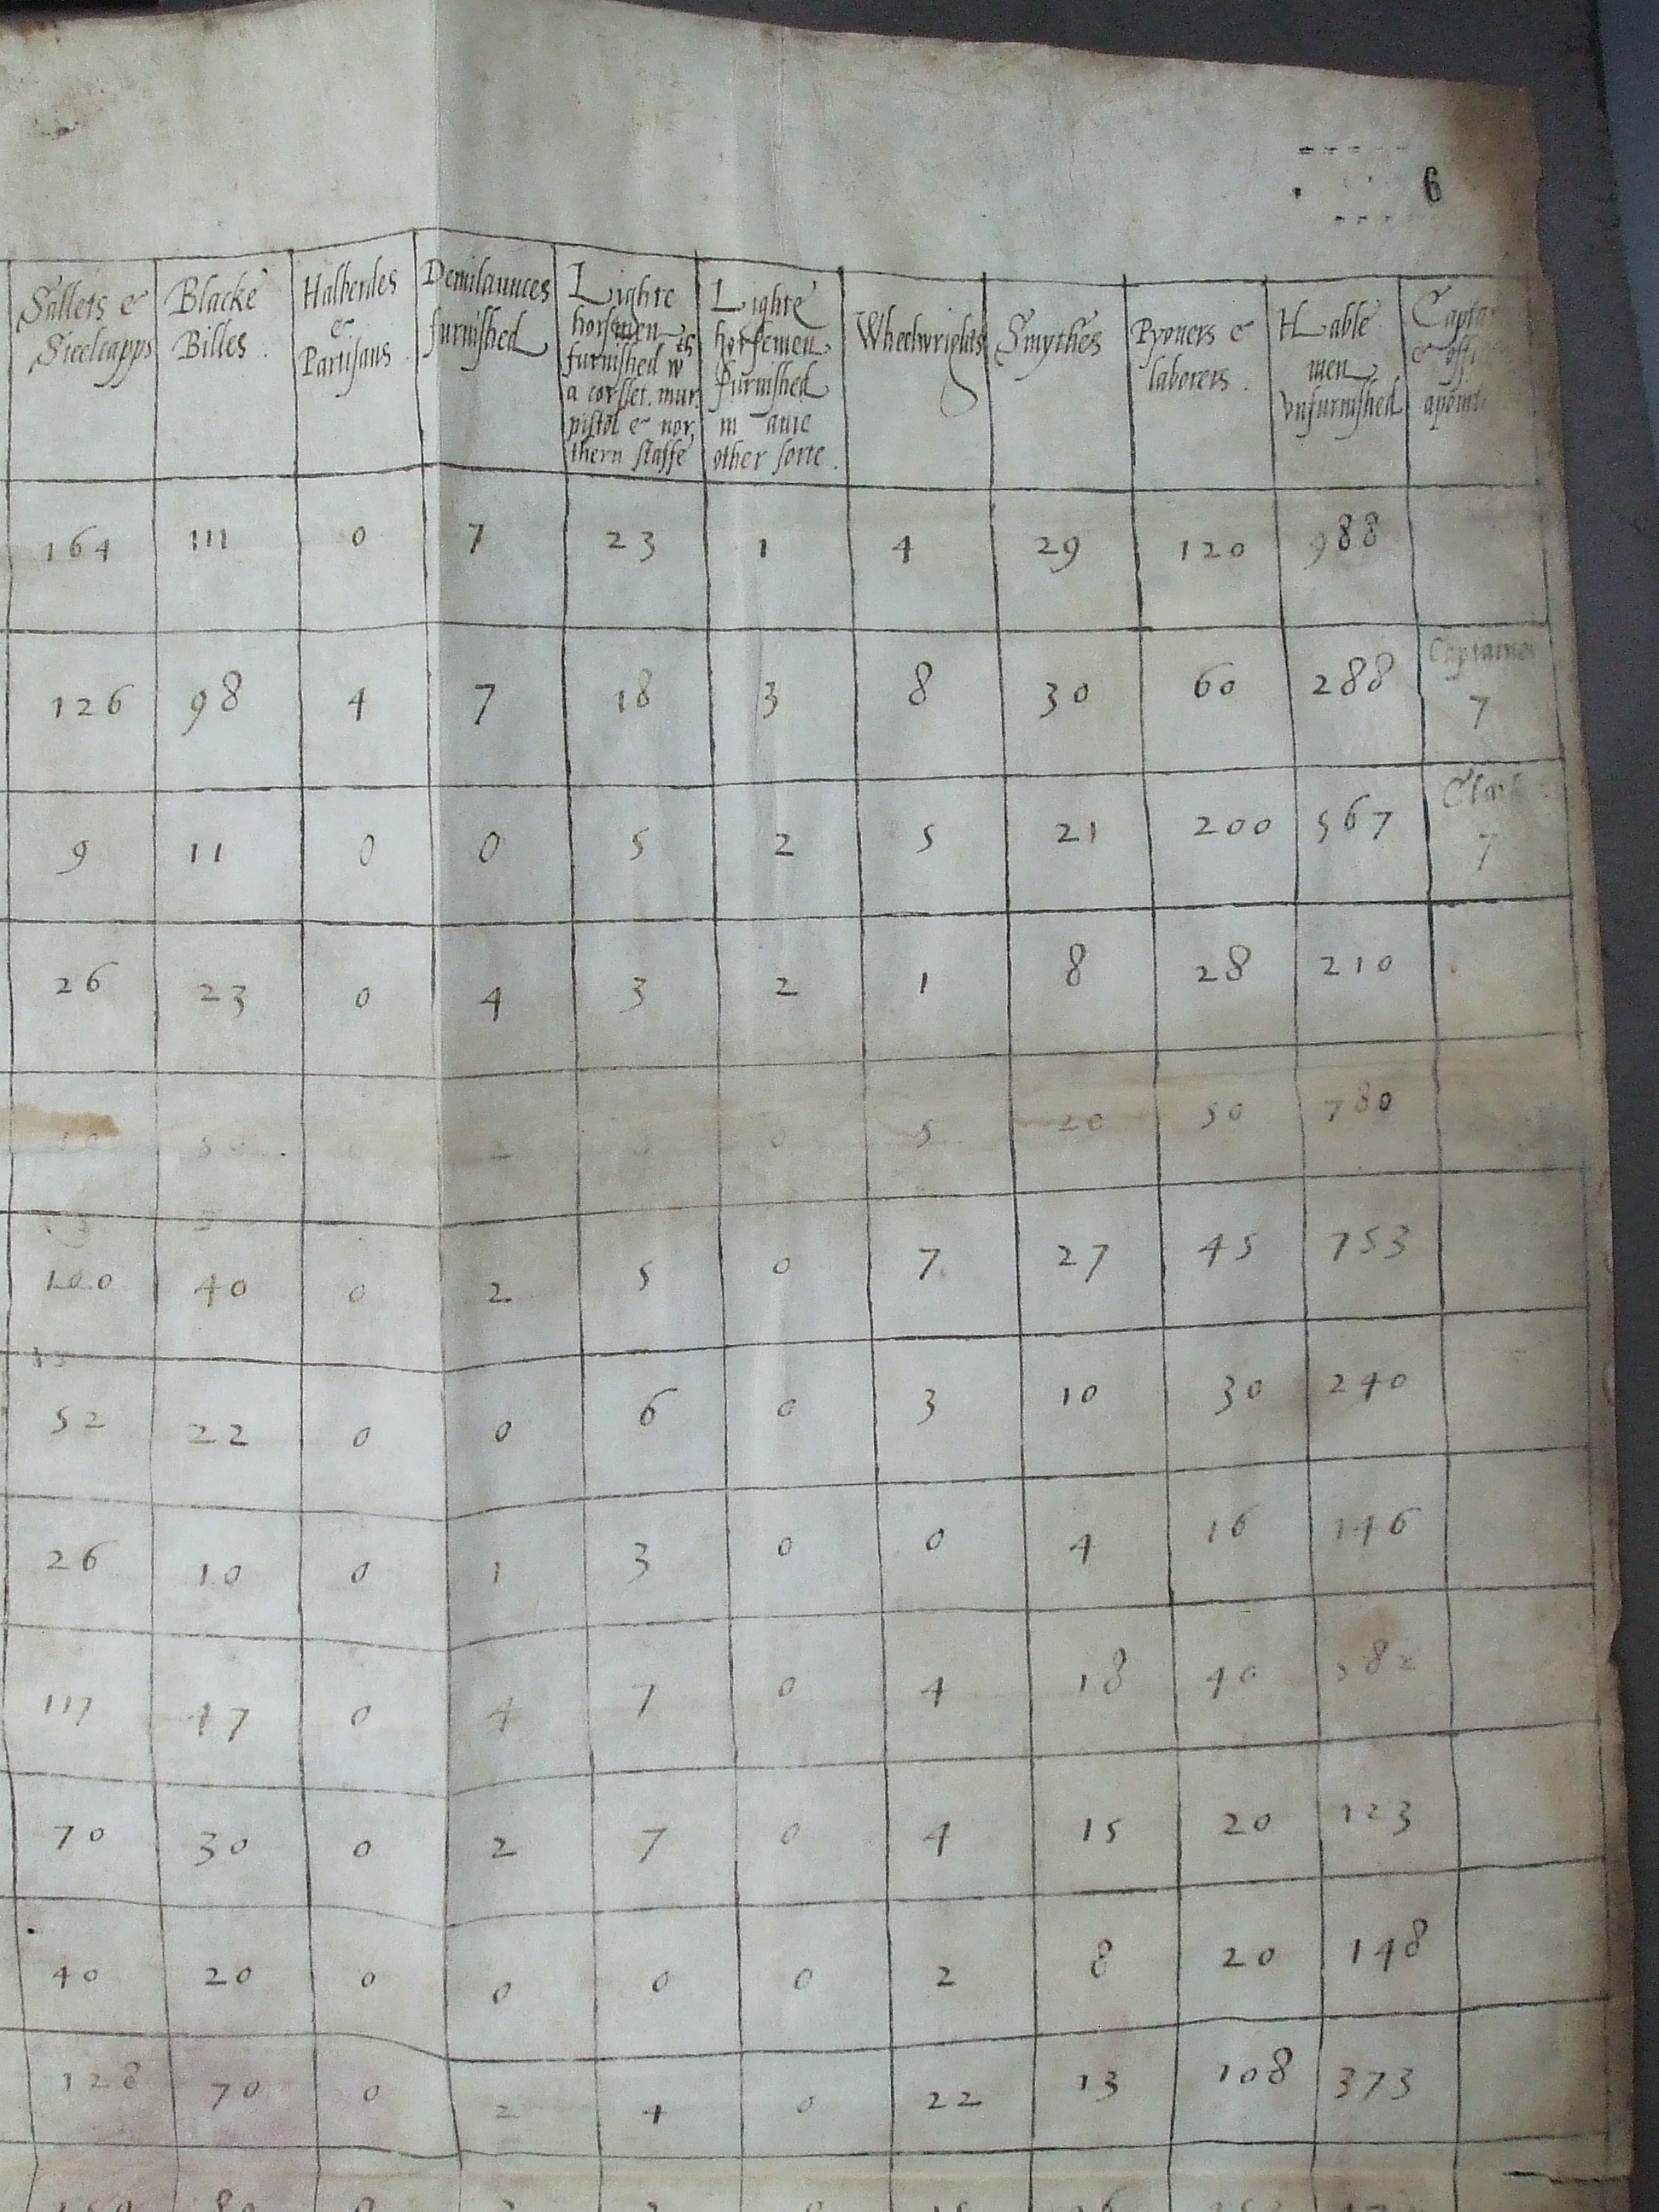 6
Sallets & Steelcapps Blacke Billes Halberdes & Partisans Demilaunces furnished Lighte horsemen furnished wth a corslet. mur. pistol & northern staffe Lighte horsemen furnished in anie other sorte Wheelwrights Smythes Pyoners & laborers Hable men vnfurnished
164 111 0 7 23 1 4 29 120 988
Captaines
126 98 4 7 18 3 8 30 60 288 7
9 11 0 0 5 2 5 21 200 567 7
26 23 0 4 3 2 1 8 28 210
0 5 20 50 780
100 40 0 2 5 0 7 27 45 753
52 22 0 0 6 0 3 10 30 240
26 10 0 1 3 0 0 4 16 146
117 47 0 4 7 0 4 18 40
70 30 0 2 7 0 4 15 20 123
40 20 0 0 0 0 2 8 20 148
128 70 0 2 4 0 22 13 108 373